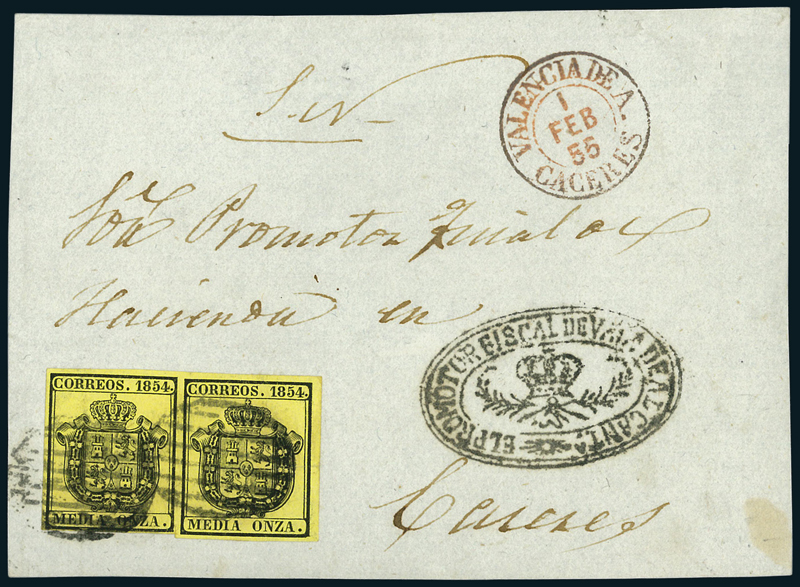 S.N.
VALENCIA DE A.
1
FEB
55
CACERES
Sor. Promotor Fiscal de
Hacienda en
EL PROMOTOR FISCAL DE VALA DE ALCANTA
CORREOS. 1854.
MEDIA ONZA.
CORREOS. 1854.
MEDIA ONZA.
Caceres